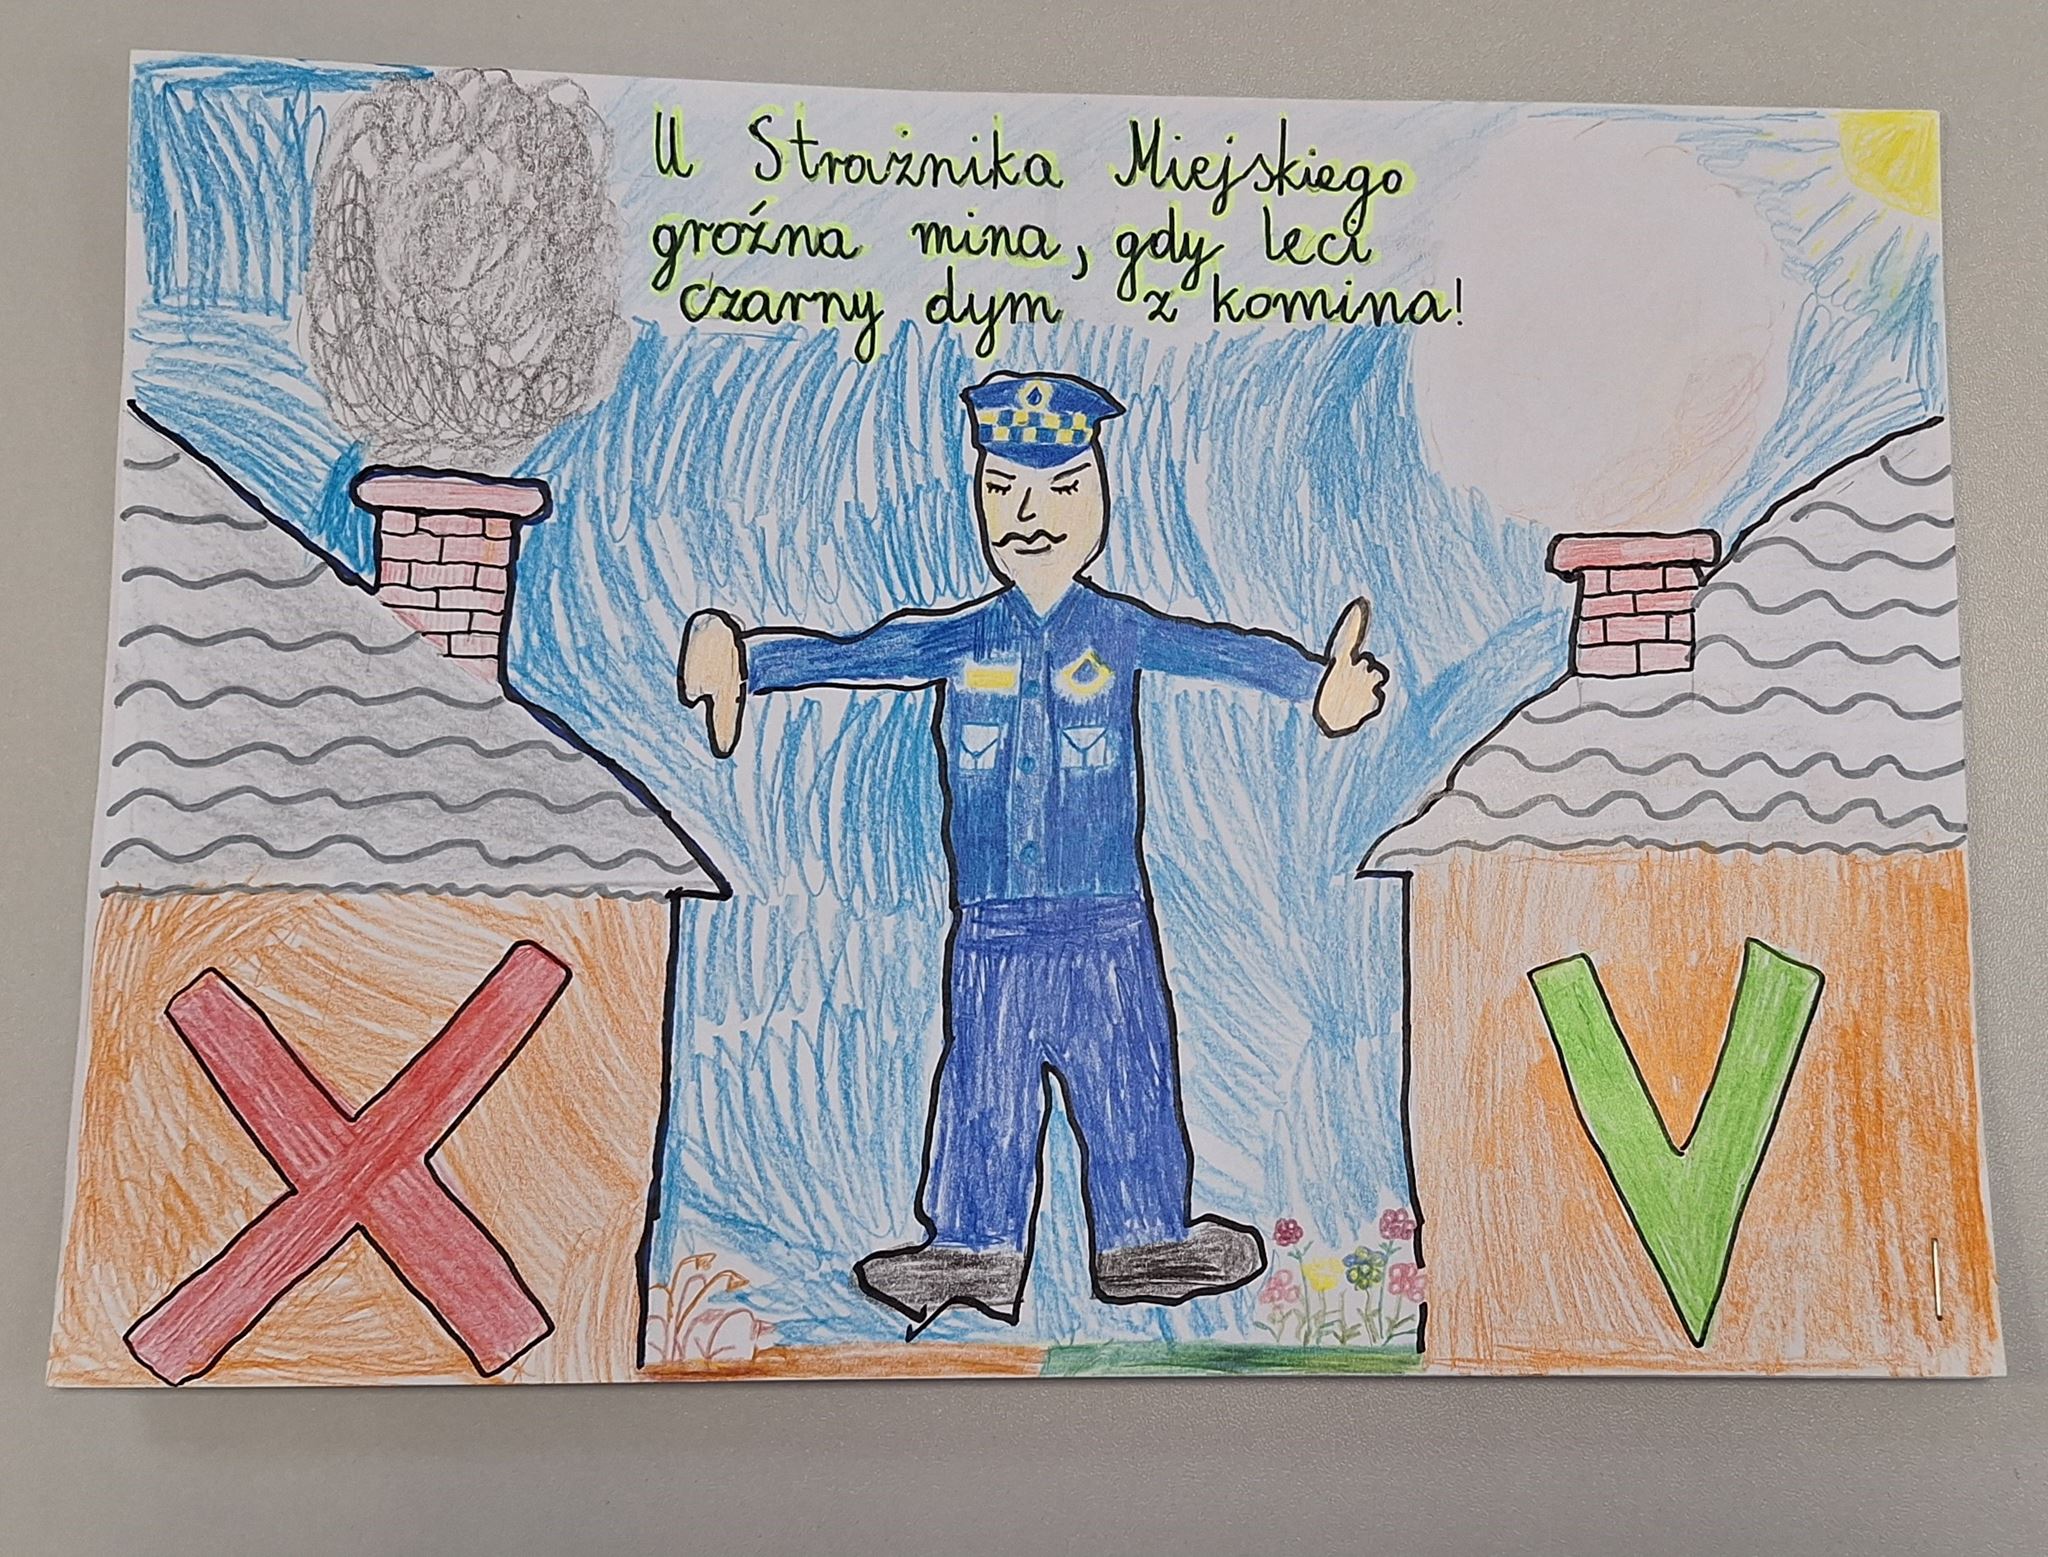 U Strażnika Miejskiego
groźna mina, gdy leci
czarny dym z komina!